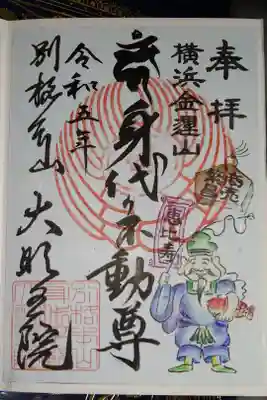 奉拝
横浜金運山
身代り不動尊
令和五年
別格本山 大明王院
商売繁昌
恵比寿